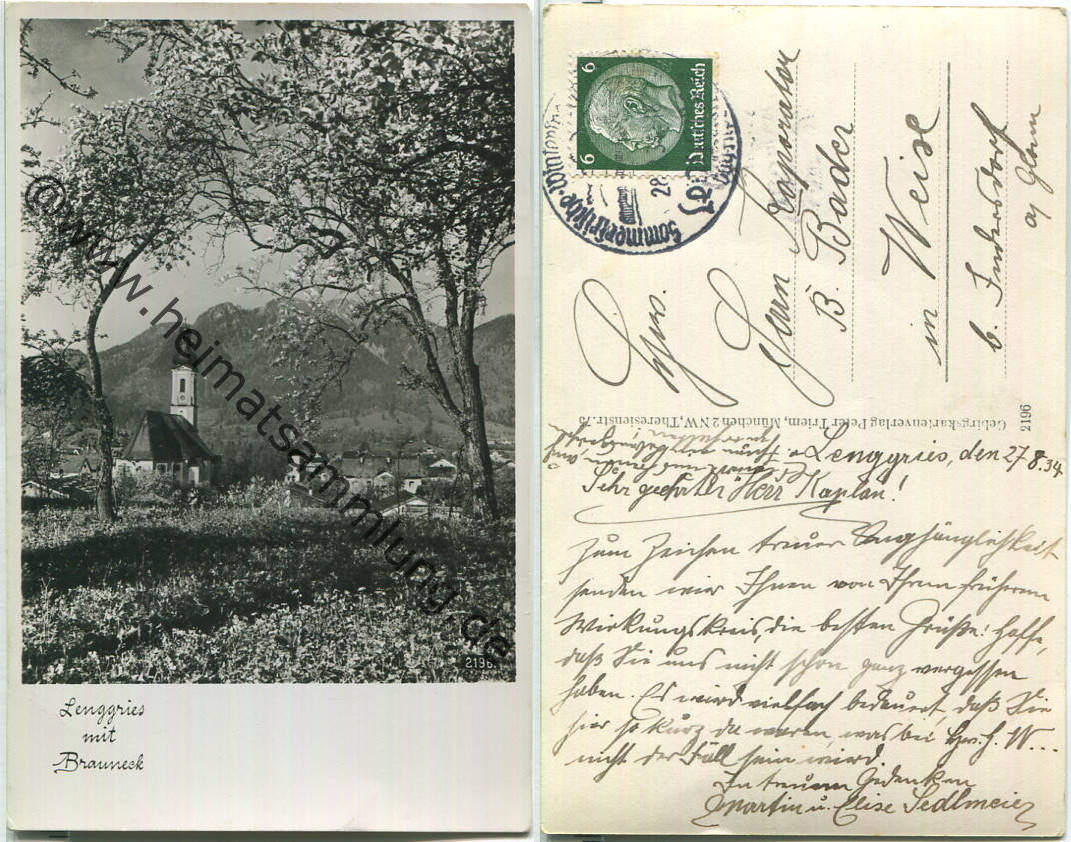 © www.heimatsammlung.de
2196
Lenggries
mit
Brauneck
6 6
Deutsches Reich
Sommerfrische
28.
Hochw.
Herrn Kooperator
B. Bader
in Weise
b. Indersdorf
a/ Glom
Gebirgskartenverlag Peter Priem, München 2 NW, Theresienstr. 75
2196
Lenggries, den 27.8.34
Sehr geehrter Herr Kaplan!
Zum Zeichen treuer Anhänglichkeit
senden wir Ihnen von Ihrem früheren
Wirkungskreis, die besten Grüße! Hoffe,
daß Sie uns nicht schon ganz vergessen
haben. Es wird vielfach bedauert, daß Sie
hier so kurz da waren, was bei H. W...
nicht der Fall sein wird.
In treuem Gedenken
Martin u. Elise Sedlmeier